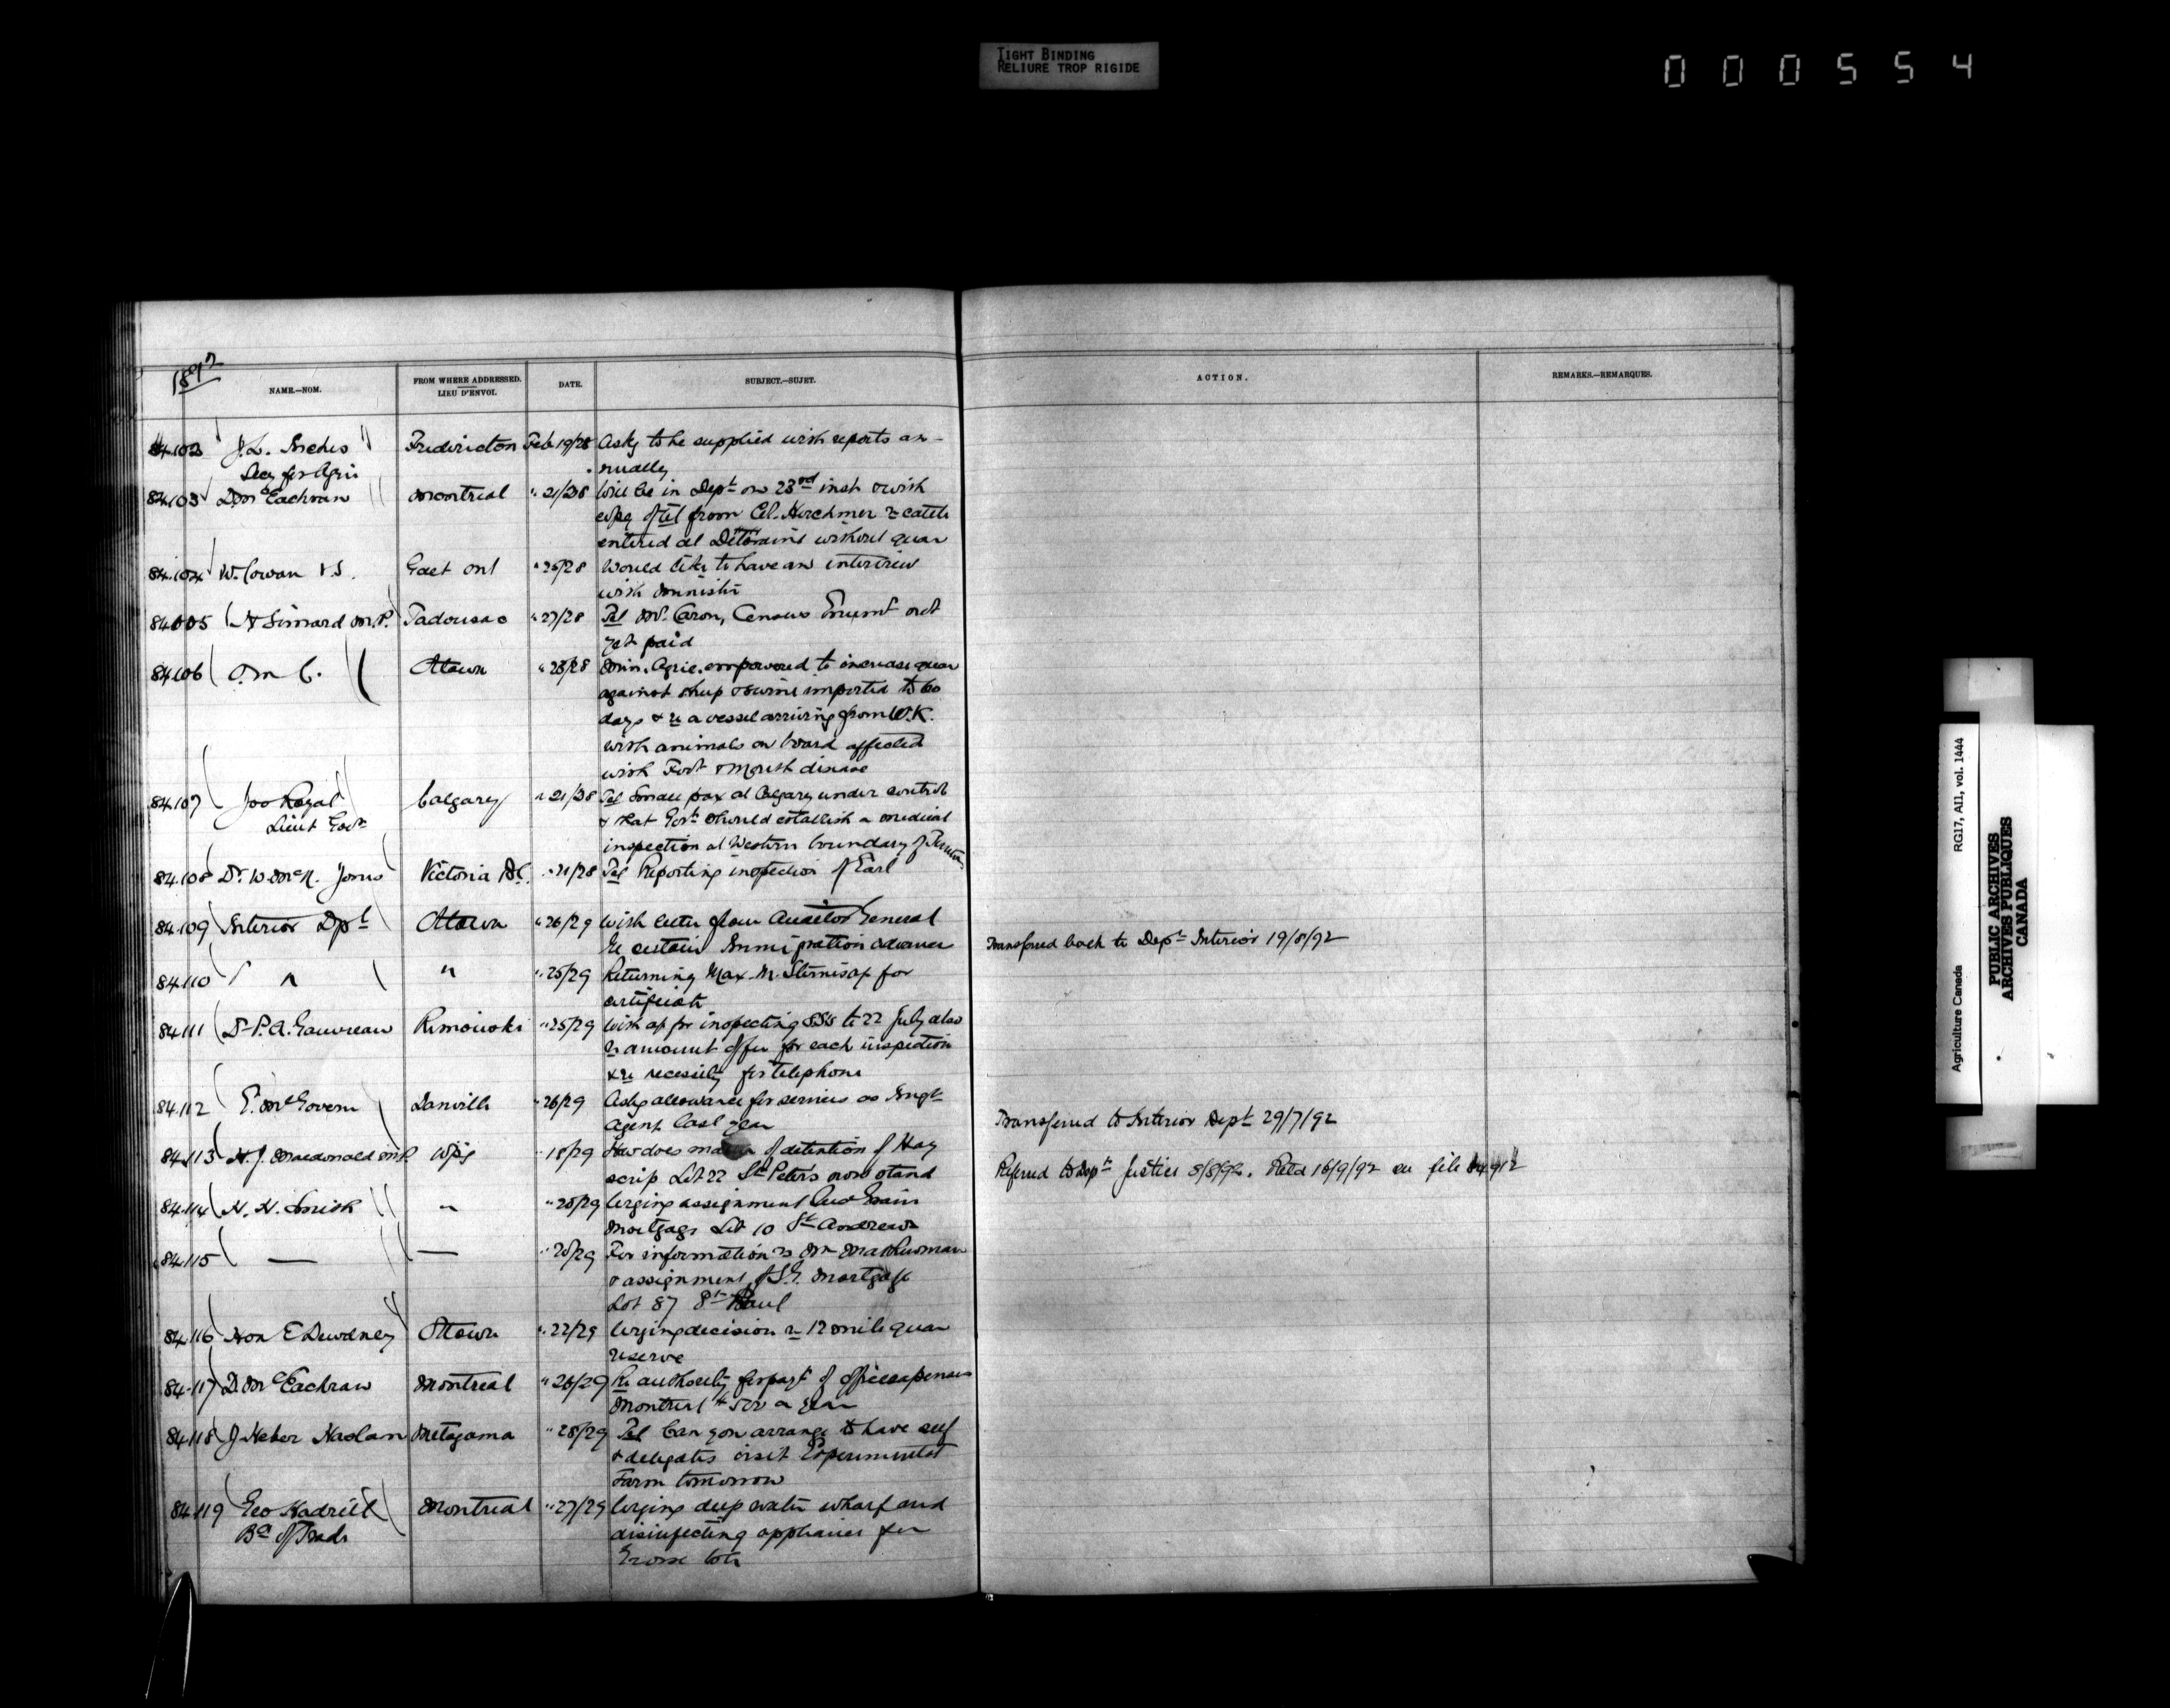 TIGHT BINDING
RELIURE TROP RIGIDE
000554
1892
NAME.—NOM.
FROM WHERE ADDRESSED.
LIEU D'ENVOI.
DATE.
SUBJECT.—SUJET.
ACTION.
REMARKS.—REMARQUES.
84.102 J.L. Inches Fredericton Feb 19/28 Asks to be supplied with reports an-
Secy for Agri nually
84.103 D. McEachran Montreal " 21/28 Will be in Dept on 23rd inst & wish
copy of tel from Col. Herchmer re cattle
entered at Deloraine without quar
84.104 W. Cowan V.S. Galt Ont " 26/28 Would like to have an interview
with Minister
84005 Simard M.P. Tadousac " 27/28 Tel Mr. Caron, Census Enumt not
yet paid
84106 O.m C. Ottawa " 28/28 Min. Agric. empowered to increase quar
against sheep & swine imported to 60
days & re a vessel arriving from U.K.
with animals on board affected
with Foot & Mouth disease
84.107 Jos Royal Calgary " 21/28 Tel Small pox at Calgary under control
Lieut Govr & that Govt should establish a medical
inspection at Western boundary of
84.108 Dr W. McN. Jones Victoria BC. " 21/28 Tel Reporting inspection of Earl
84.109 Interior Dpt Ottawa " 26/29 With letter from Auditor General
Re certain Immigration advances Transferred back to Dept Interior 19/8/92
84.110 " " " 25/29 Returning Max. M. Stern's ap for
certificate
84.111 Dr P.A. Gauvreau Rimouski " 25/29 With ap for inspecting SS's to 22 July also
re amount offer for each inspection
& re necessity for telephone
84.112 E. McGovern Danville " 26/29 Asks allowance for services as Imgt
Agent last year Transferred to Interior Dept 29/7/92
84.113 H.J. Macdonald M.P. Wpg " 18/29 How does matter of detention of Hay
scrip Lot 22 St Peter's now stand Referred to Dept Justice 8/8/92. Retd 16/9/92 on file 84912
84.114 H. H. Smith " " 25/29 Urging assignment Grain
Mortgage Lot 10 St Andrews
84.115 — — " 25/29 For information re Mr
& assignment of S.G. Mortgage
Lot 87 St Paul
84.116 Hon E Dewdney Ottawa " 22/29 Urging decision re 12 mile quar
reserve
84.117 D. McEachran Montreal " 26/29 Re authority for payt of office expenses
Montreal a year
84.118 J Heber Haslam Metagama " 28/29 Tel Can you arrange to have self
& delegates visit Experimental
Farm tomorrow
84.119 Geo Hadrill Montreal " 27/29 Urging deep water wharf and
Bd of Trade disinfecting appliances for
Grosse Isle
Agriculture Canada RG17, AI1, vol. 1444
PUBLIC ARCHIVES
ARCHIVES PUBLIQUES
CANADA